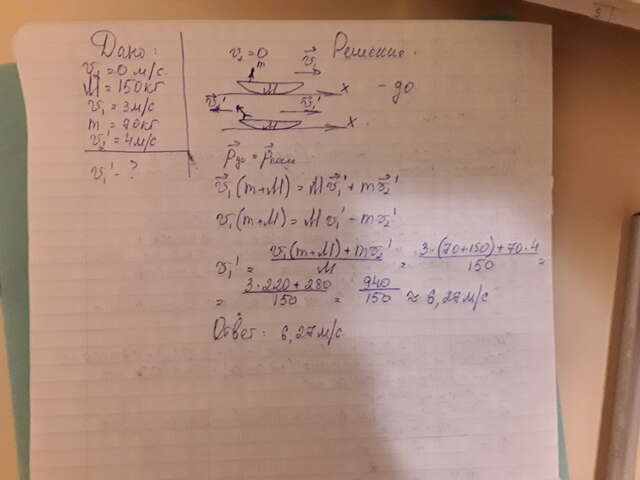 Дано:
v₂ = 0 м/с
M = 150кг
v₁ = 3м/с
m = 70кг
v₂' = 4м/с
v₁' - ?
v₂ = 0
v⃗₁
Решение.
m
M
x
- до
v⃗₂'
v⃗₁'
M
x
p⃗до = p⃗после
v⃗₁(m+M) = Mv⃗₁' + mv⃗₂'
v₁(m+M) = Mv₁' - mv₂'
v₁' = (v₁(m+M) + mv₂')/M = (3·(70+150)+70·4)/150 =
= (3·220+280)/150 = 940/150 ≈ 6,27м/с
Ответ: 6,27м/с
5